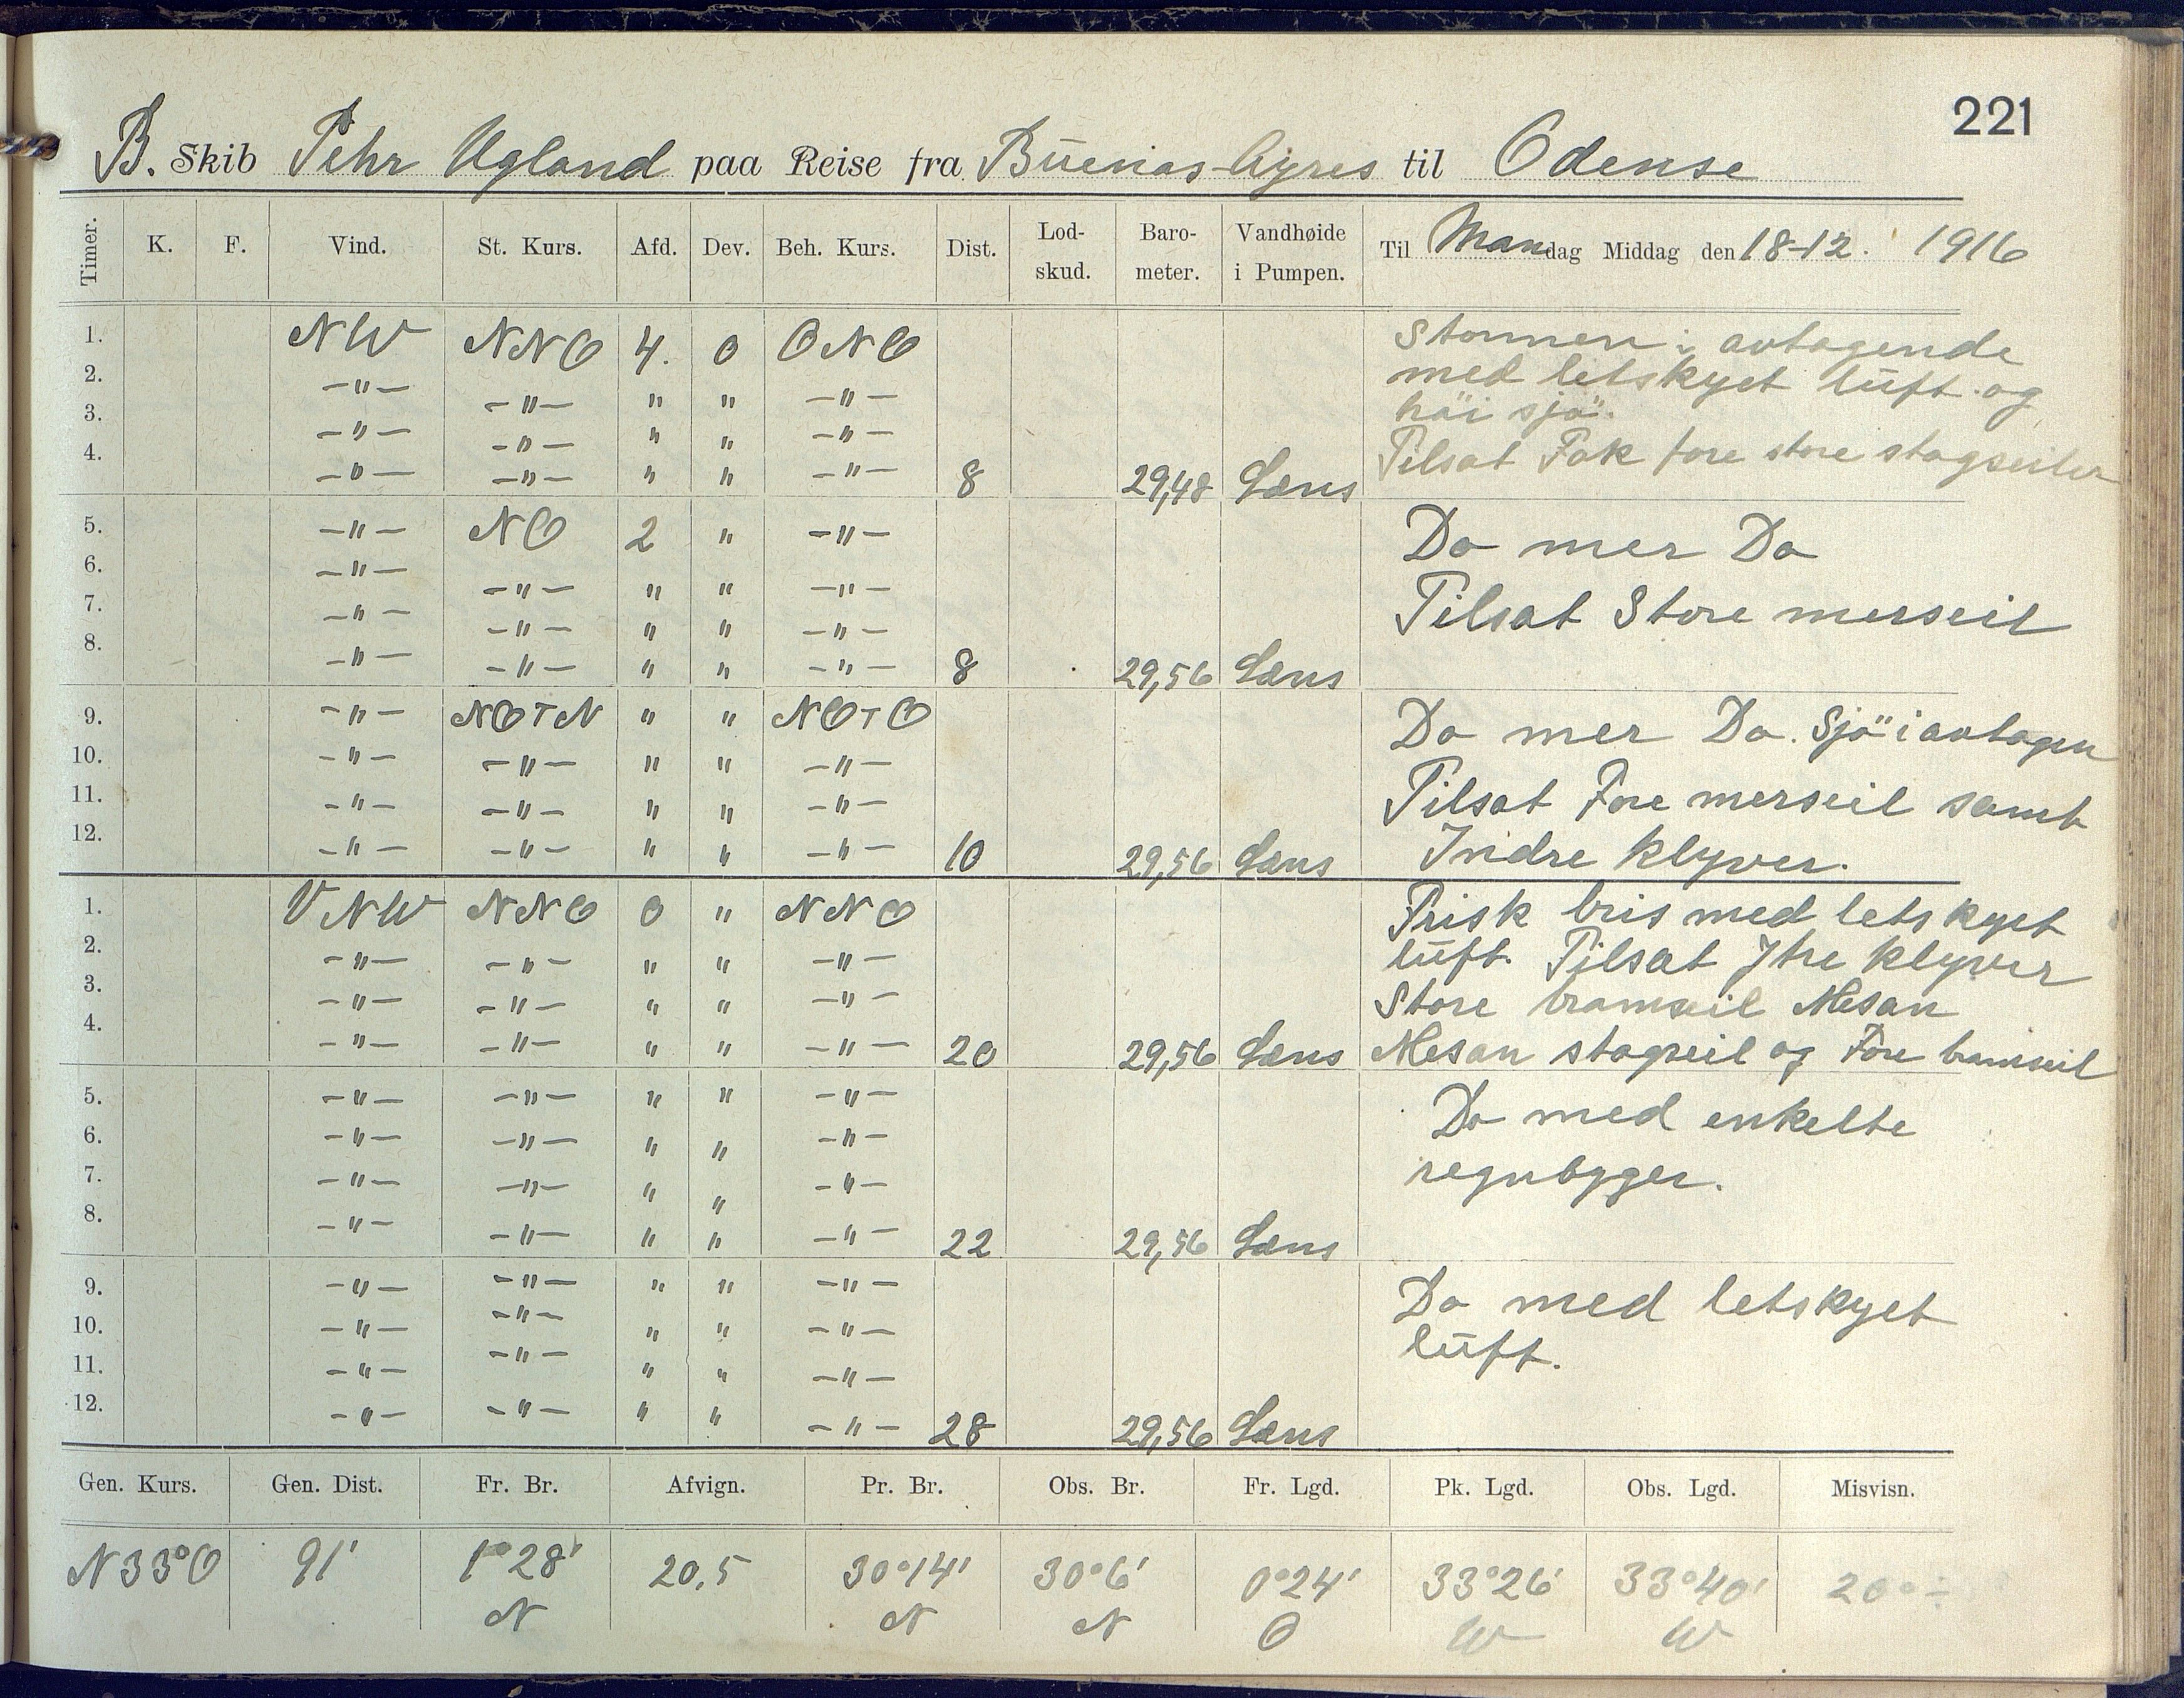 221
B. Skib Pehr Ugland paa Reise fra Buenas-Ayres til Odense
Timer. K. F. Vind. St. Kurs. Afd. Dev. Beh. Kurs. Dist. Lod-skud. Baro-meter. Vandhøide i Pumpen. Til Mandag Middag den 18-12. 1916
1. NW NNO 4. 0 ONO Stormen i avtagende
2. -"- -"- " " -"- med letskyet luft og
3. -"- -"- " " -"- höi sjö.
4. -"- -"- " " -"- 8 29,48 Læns Tilsat Fok fore store stagseiler
5. -"- NO 2 " -"- Do mer Do
6. -"- -"- " " -"-
7. -"- -"- " " -"- Tilsat Store merseil
8. -"- -"- " " -"- 8 29,56 Læns
9. -"- NOTN " " NOTO Do mer Do. Sjö i avtagen
10. -"- -"- " " -"-
11. -"- -"- " " -"- Tilsat Fore merseil samt
12. -"- -"- " " -"- 10 29,56 Læns Indre klyver.
1. VNW NNO 0 " NNO Frisk bris med letskyet
2. -"- -"- " " -"- luft. Tilsat Ytre klyver
3. -"- -"- " " -"- Store bramseil Mesan
4. -"- -"- " " -"- 20 29,56 Læns Mesan stagseil og Fore bramseil
5. -"- -"- " " -"- Do med enkelte
6. -"- -"- " " -"-
7. -"- -"- " " -"- regnbyger.
8. -"- -"- " " -"- 22 29,56 Læns
9. -"- -"- " " -"- Do med letskyet
10. -"- -"- " " -"- luft.
11. -"- -"- " " -"-
12. -"- -"- " " -"- 28 29,56 Læns
Gen. Kurs. Gen. Dist. Fr. Br. Afvign. Pr. Br. Obs. Br. Fr. Lgd. Pk. Lgd. Obs. Lgd. Misvisn.
N33°O 91' 1°28' 20,5 30°14' 30°6' 0°24' 33°26' 33°40' 20°÷
N N N O W W